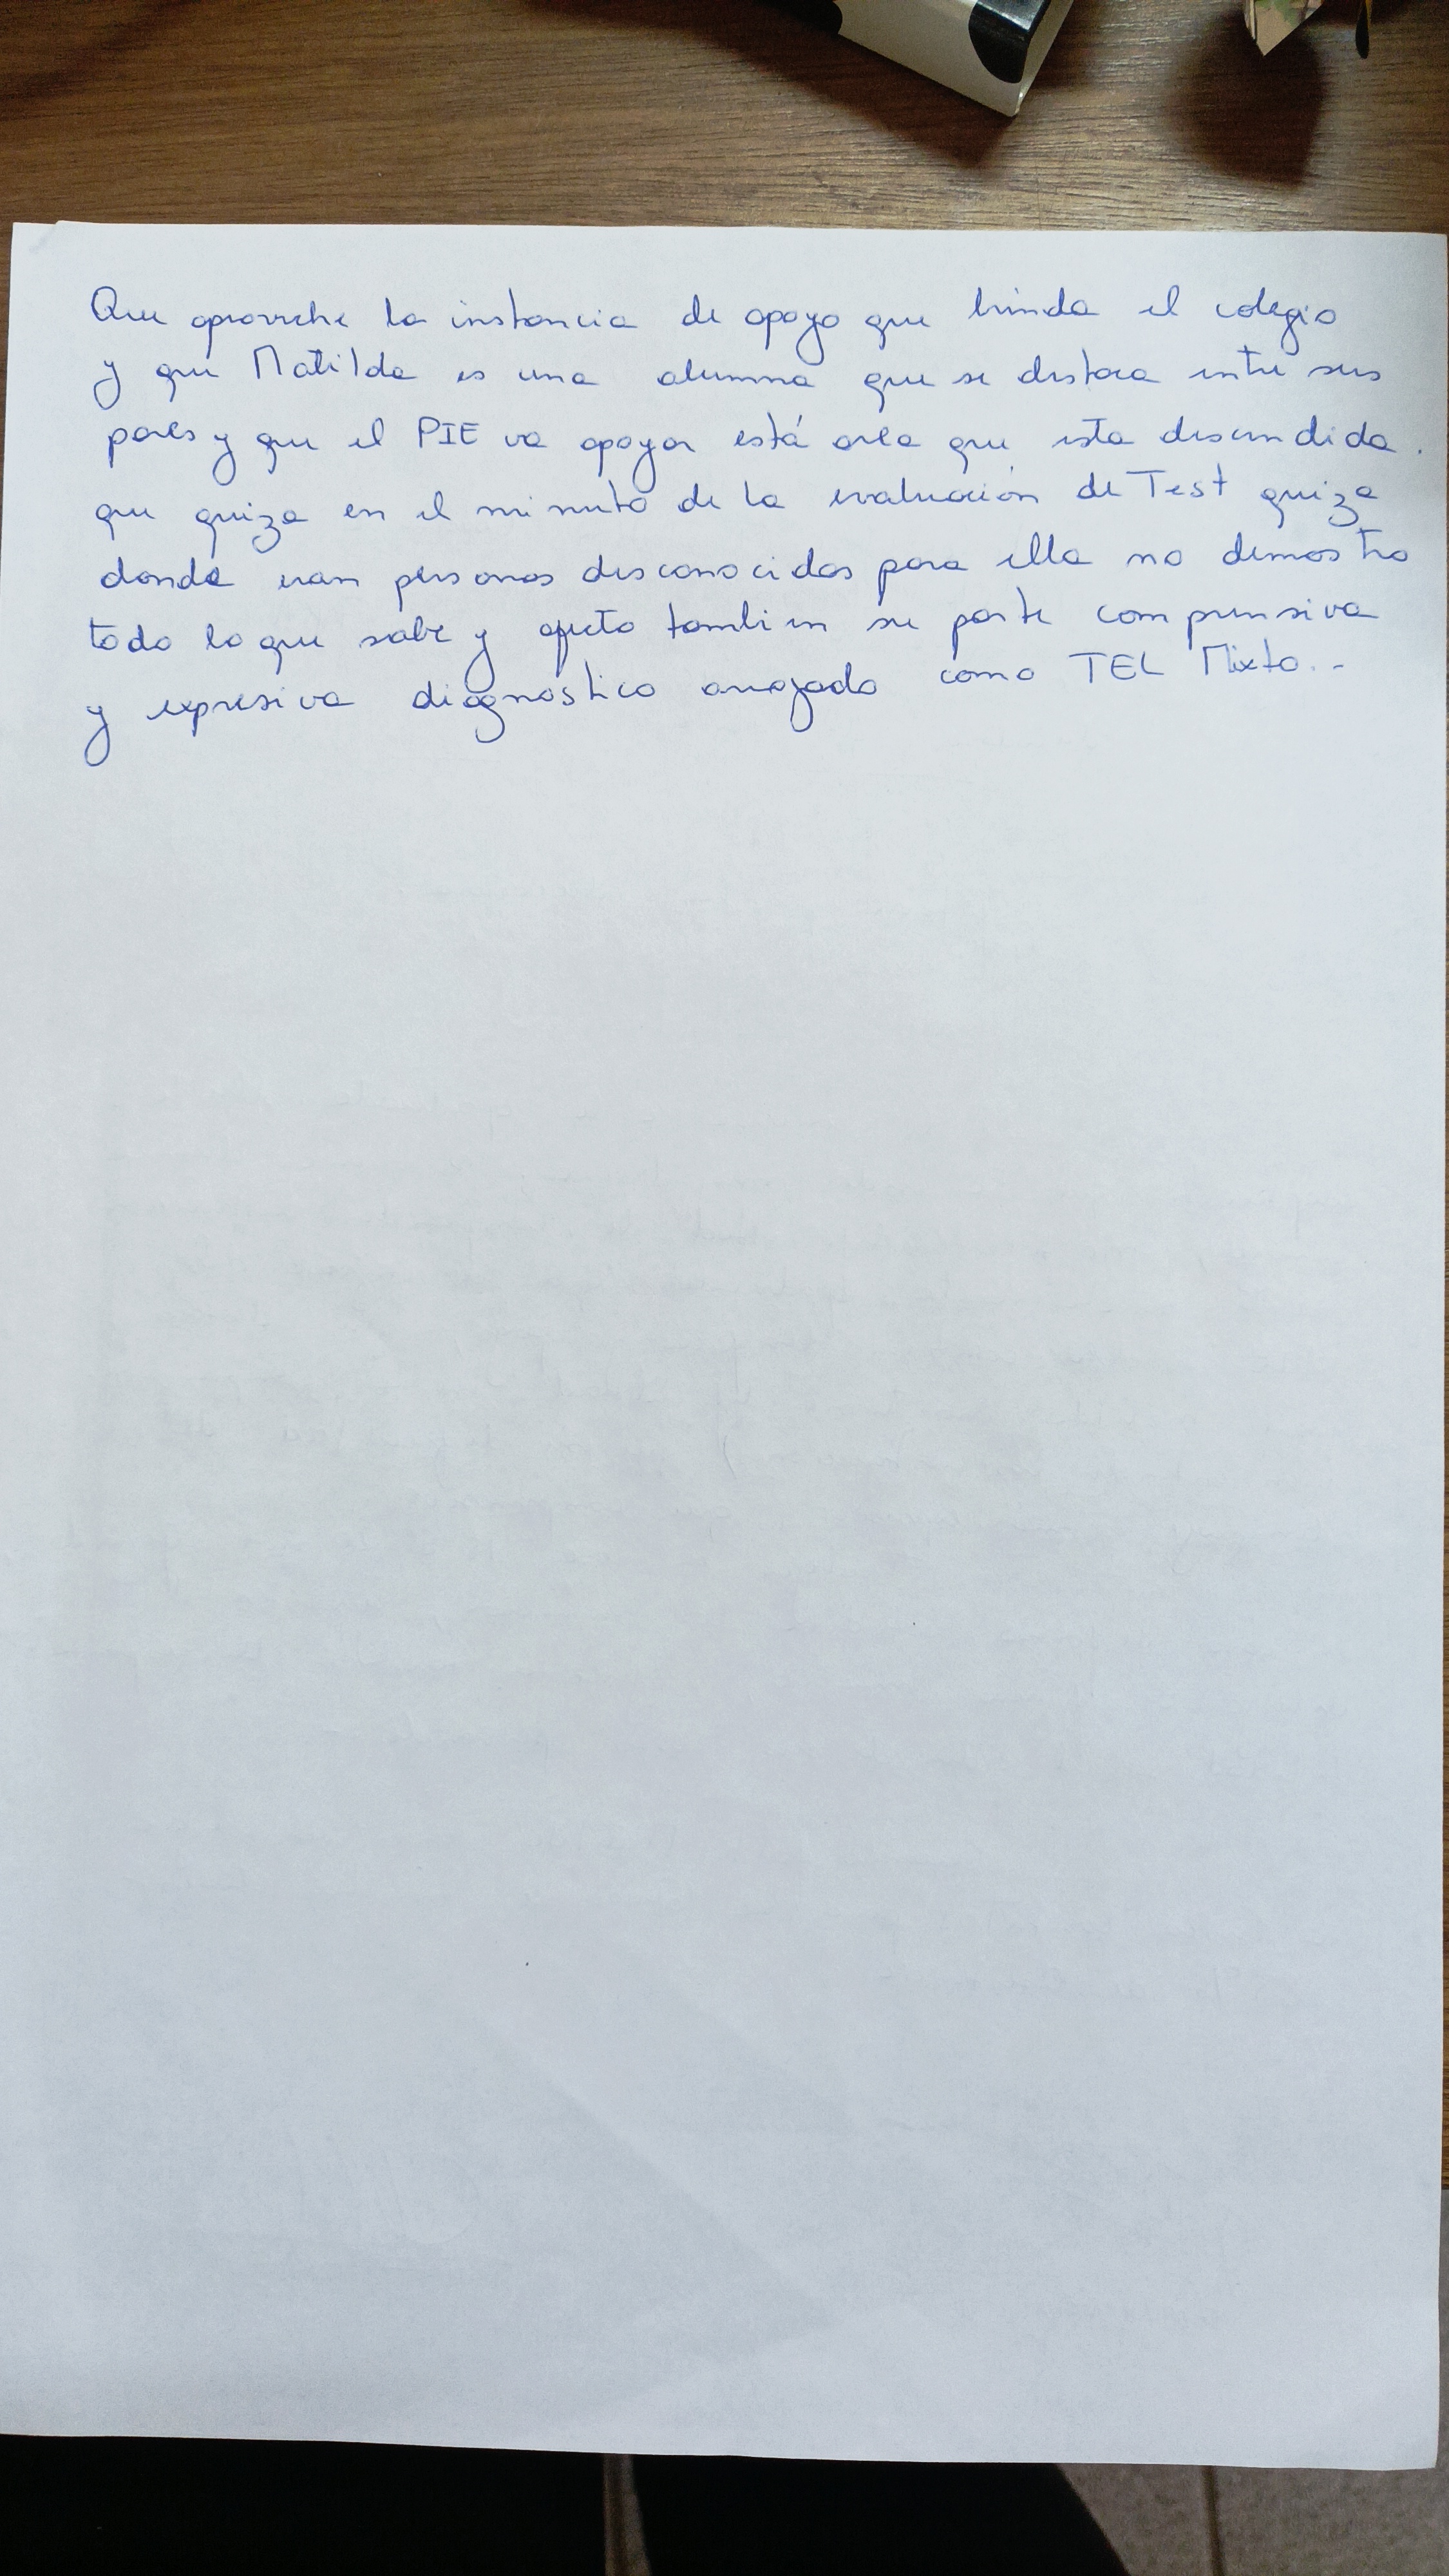 Que aproveche la instancia de apoyo que brinda el colegio
y que Matilda es una alumna que se destaca entre sus
pares y que el PIE va apoyar está area que esta descendida.
que quiza en el minuto de la evaluación de Test quiza
donde eran personas desconocidas para ella no demostro
todo lo que sabe y afecto tambien su parte comprensiva
y expresiva diagnostico arrojado como TEL Mixto..-